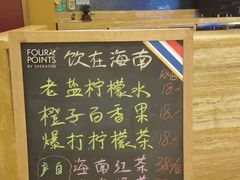 FOUR POINTS
BY SHERATON
饮在海南
RMB
老盐柠檬水 18.-
橙子百香果 18.-
爆打柠檬茶 18.-
产自 海南红茶 38/壶